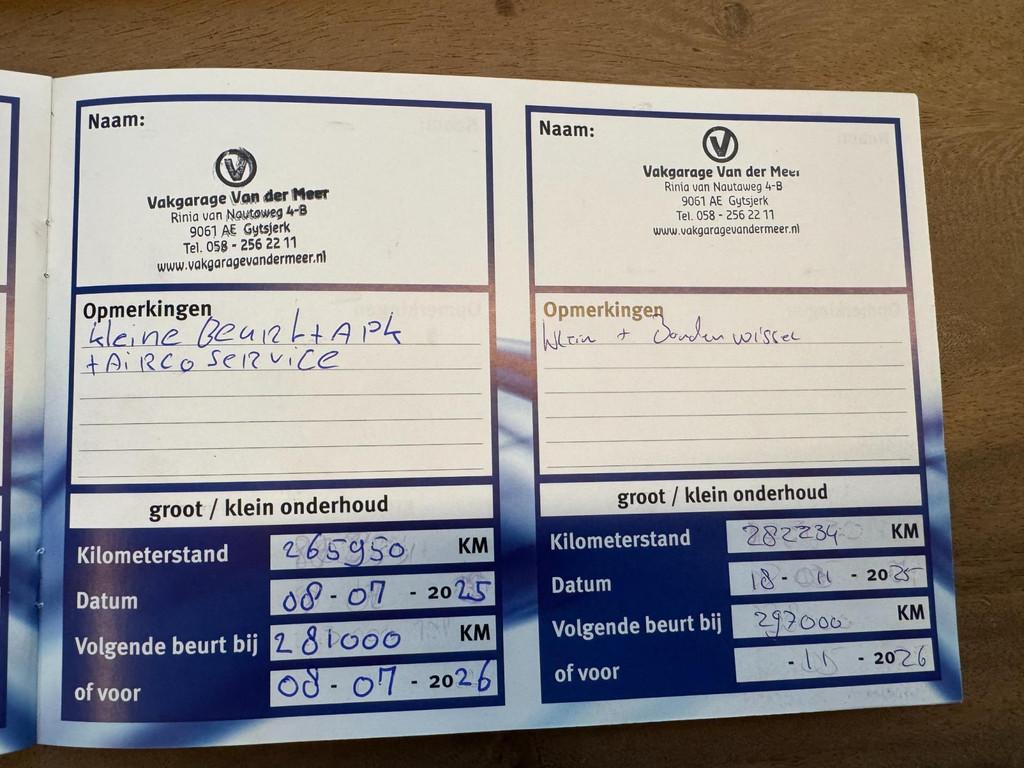 Naam:
Vakgarage Van der Meer
Rinia van Nautaweg 4-B
9061 AE Gytsjerk
Tel. 058 - 256 22 11
www.vakgaragevandermeer.nl
Opmerkingen
kleine Beurt + APK
+ AiRCo SERVICE
groot / klein onderhoud
Kilometerstand 265950 KM
Datum 08 - 07 - 2025
Volgende beurt bij 281000 KM
of voor 08 - 07 - 2026
Naam:
Vakgarage Van der Meer
Rinia van Nautaweg 4-B
9061 AE Gytsjerk
Tel. 058 - 256 22 11
www.vakgaragevandermeer.nl
Opmerkingen
klein + Banden wissel
groot / klein onderhoud
Kilometerstand 282234 KM
Datum 18 - 11 - 2025
Volgende beurt bij 297000 KM
of voor - 11 - 2026